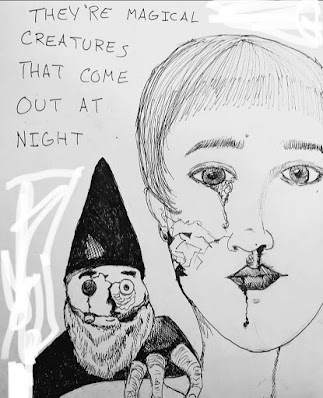 THEY'RE MAGICAL
CREATURES
THAT COME
OUT AT
NIGHT